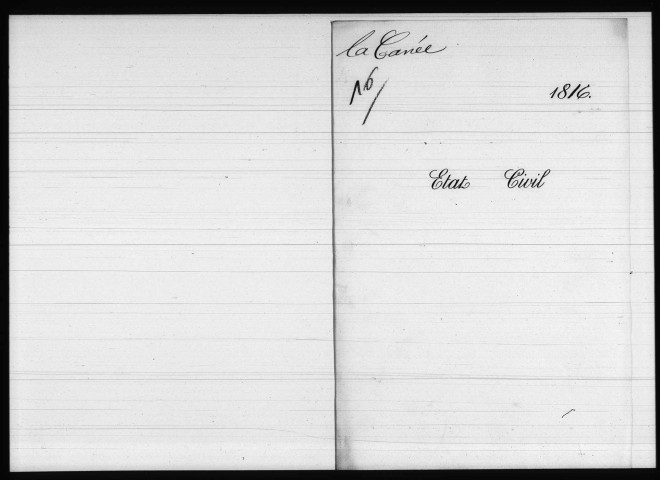 la Canée
16/
1816.
Etat Civil